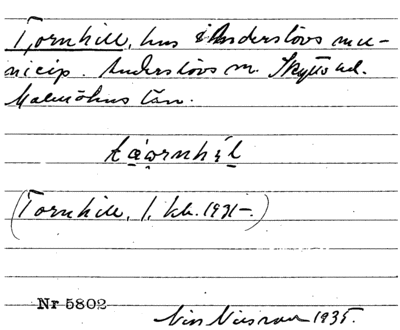 Tornhill, hus i Anderslövs mu-
nicip. Anderslövs sn. Skytts hd.
Malmöhus län.
(Tornhill, J. kb. 1931-.)
Nr 5802
1935.